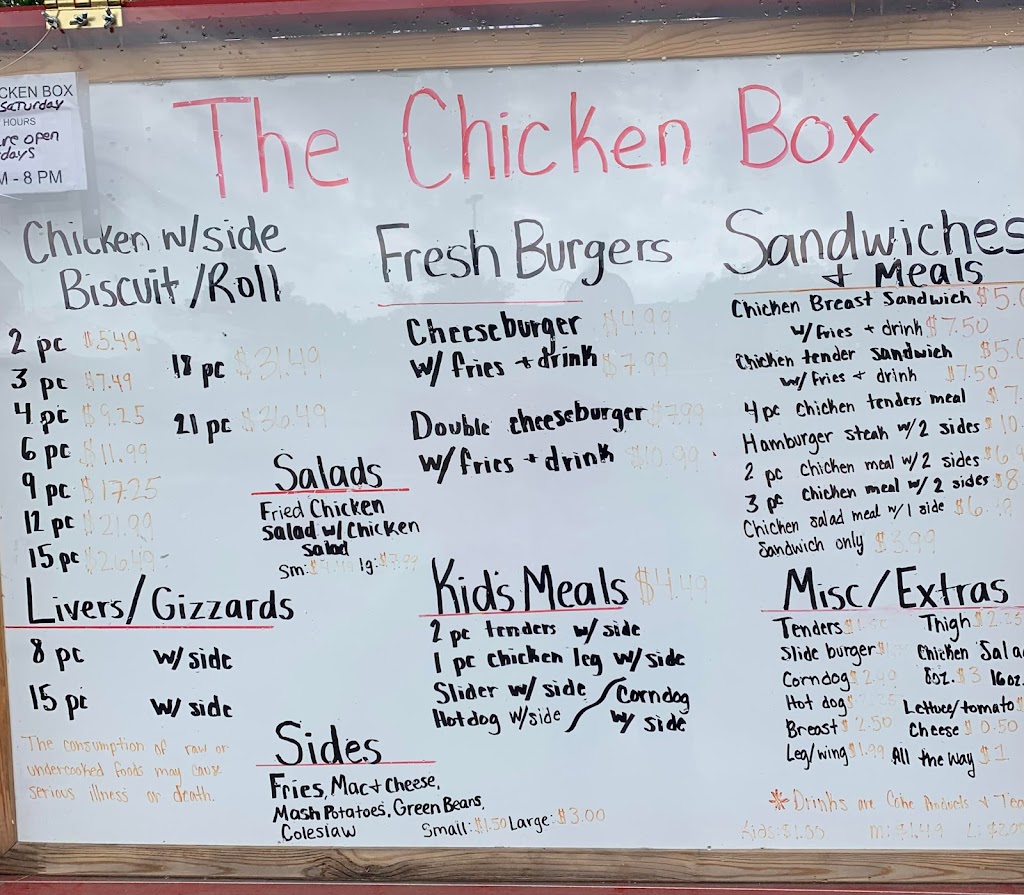 CKEN BOX
SATURDAY
HOURS
re open
days
M - 8 PM
The Chicken Box
Chicken w/side
Biscuit/Roll
2 pc $5.49
3 pc $7.49
4 pc $9.25
6 pc $11.99
9 pc $17.25
12 pc $21.99
15 pc $26.49
18 pc $31.49
21 pc $36.49
Salads
Fried Chicken
Salad w/ Chicken
Salad
Sm: lg:
Livers/Gizzards
8 pc w/side
15 pc w/ side
The consumption of raw or
undercooked foods may cause
serious illness or death.
Fresh Burgers
Cheeseburger $4.99
w/ fries + drink $7.99
Double cheeseburger $7.99
w/fries + drink $10.99
Kid's Meals $4.49
2 pc tenders w/ side
1 pc chicken leg w/side
Slider w/ side / Corndog
Hotdog w/side / w/ side
Sides
Fries, Mac + Cheese,
Mash Potatoes, Green Beans,
Coleslaw Small: $1.50 Large: $3.00
Sandwiches
+ Meals
Chicken Breast Sandwich $5.0
w/fries + drink $7.50
Chicken tender sandwich $5.0
w/ fries + drink $7.50
4 pc chicken tenders meal $7.
Hamburger steak w/2 sides $10.
2 pc chicken meal w/2 sides $6.
3 pc chicken meal w/ 2 sides $8
Chicken salad meal w/1 side $6.49
Sandwich only $3.99
Misc/Extras
Tenders Thigh $2.25
Slide burger Chicken Sala
Corndog $2.99 8oz. $3 16oz.
Hot dog Lettuce/tomato $
Breast $2.50 Cheese $0.50
Leg/wing $1.99 All the way $1
* Drinks are Coke Products + Tea
Kids: $1.00 M: $1.49 L: $2.00